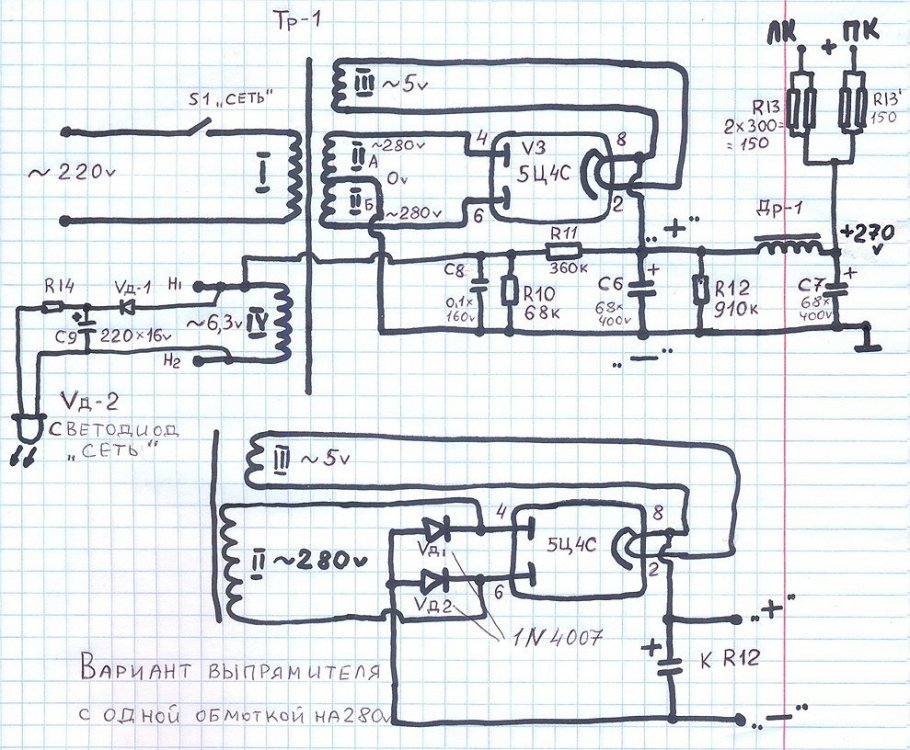 Тр-1
ЛК + ПК
S1 „СЕТЬ"
III ~5v
R13
2×300=
=150
R13'
150
~220v
I
II А
~280v
0v
II Б
~280v
4
6
V3
5Ц4С
8
2
„+"
Др-1
+270
v
R11
360к
C8
0,1×
160v
R10
68к
C6
68×
400v
+
R12
910к
C7
68×
400v
+
R14
Vд-1
H1
~6,3v IV
+
C9
220×16v
H2
„—"
Vд-2
СВЕТОДИОД
„СЕТЬ"
III ~5v
II ~280v
4
6
5Ц4С
8
2
Vд1
Vд2
1N4007
„+"
+
К R12
„—"
ВАРИАНТ ВЫПРЯМИТЕЛЯ
С ОДНОЙ ОБМОТКОЙ НА 280v